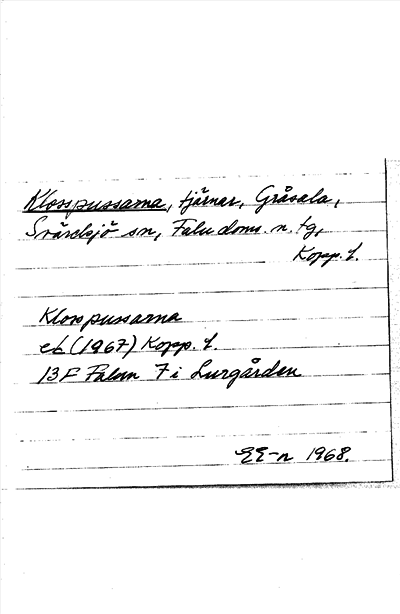 Klosspussarna, tjärnar, Gråsala,
Svärdsjö sn, Falu doms. n. tg,
Kopp. l.
Klosspussarna
ek (1967) Kopp. l.
13F Falun 7i Lurgården
EE-n 1968.